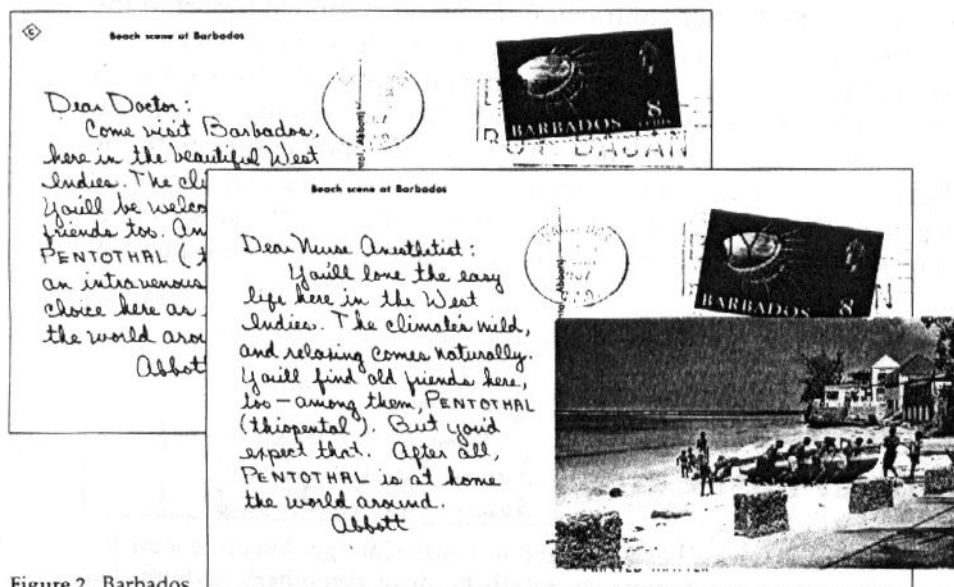 C
Beach scene at Barbados
8
CENTS
BARBADOS
Dear Doctor:
Come visit Barbados,
here in the beautiful West
Indies. The cli
You'll be welco
friends too. An
PENTOTHAL (t
an intravenous
choice here as
the world arou
Abbott
Beach scene at Barbados
BARBADOS 8
Dear Nurse Anesthetist:
You'll love the easy
life here in the West
Indies. The climate's mild,
and relaxing comes naturally.
You'll find old friends here,
too — among them, PENTOTHAL
(thiopental). But you'd
expect that. After all,
PENTOTHAL is at home
the world around.
Abbott
Figure 2 Barbados